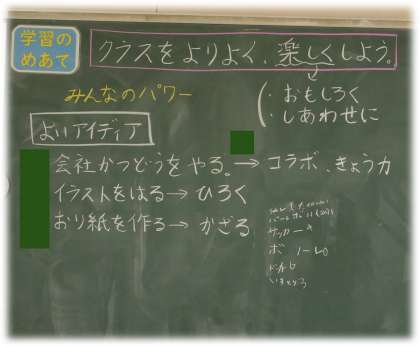 学習の
めあて
クラスをよりよく、楽しくしよう。
みんなのパワー
・おもしろく
・しあわせに
よいアイディア
会社かつどうをやる。→コラボ、きょう力
イラストをはる→ひろく
おり紙を作る→かざる
サッカー